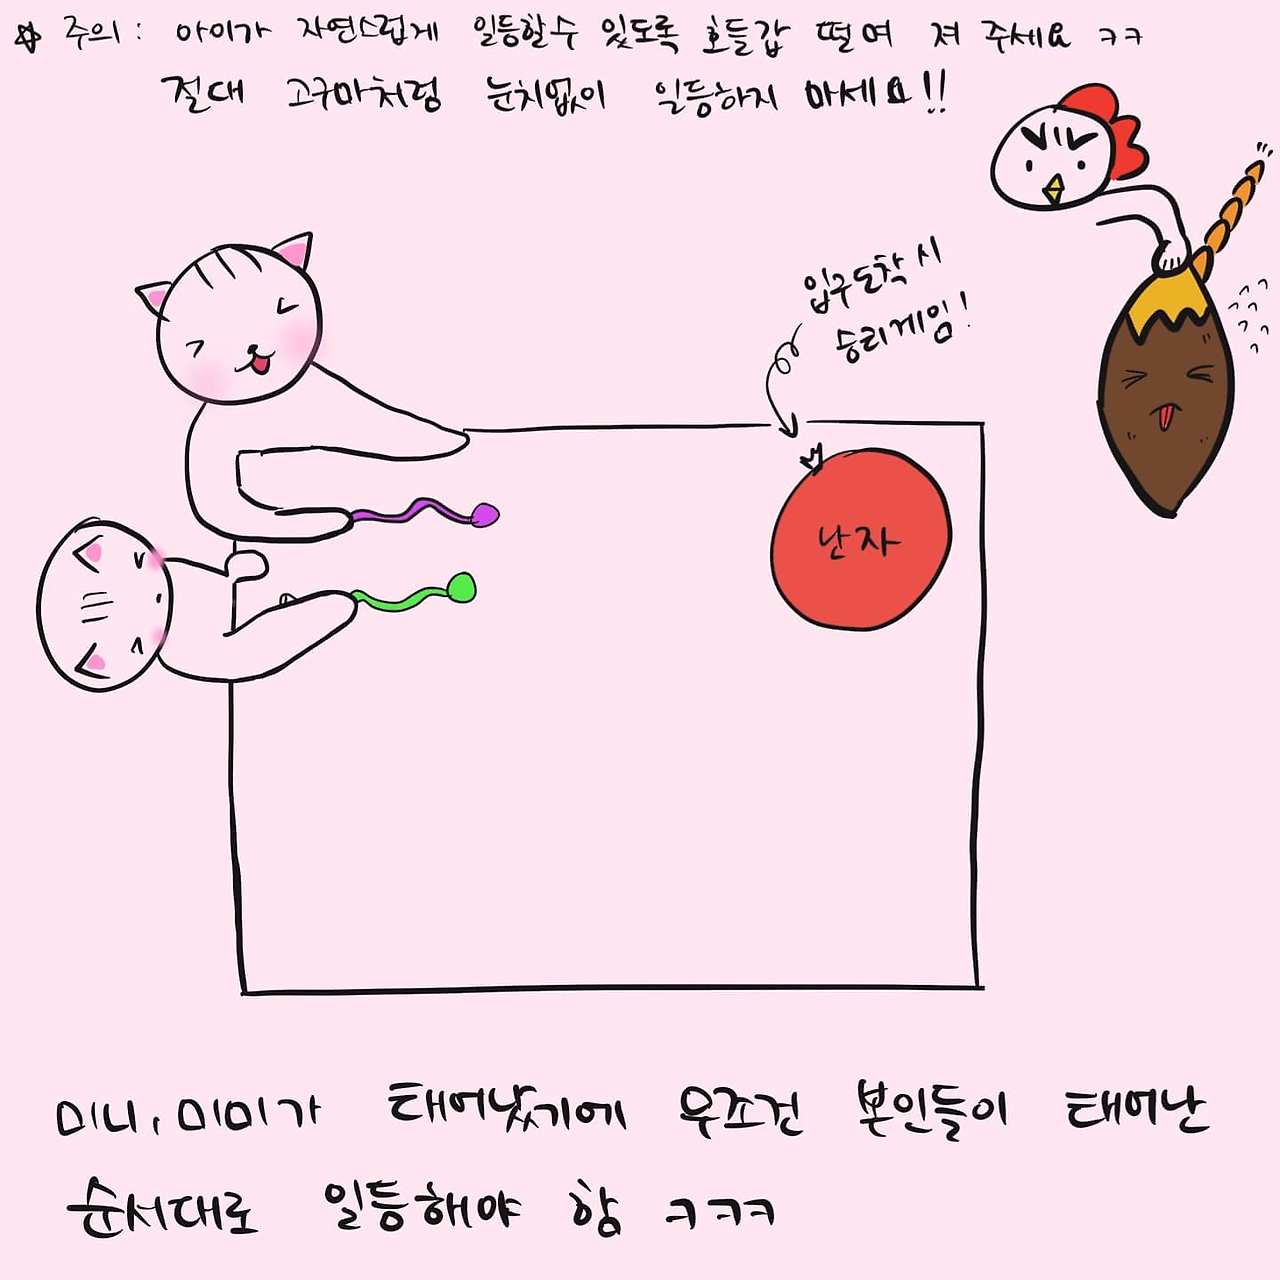 ☆ 주의 : 아이가 자연스럽게 일등할수 있도록 호들갑 떨여 져 주세요 ㅋㅋ
절대 고구마처럼 눈치없이 일등하지 마세요!!
입구도착 시
승리게임!
난자
미니, 미미가 태어났기에 무조건 본인들이 태어난
순서대로 일등해야 함 ㅋㅋㅋ